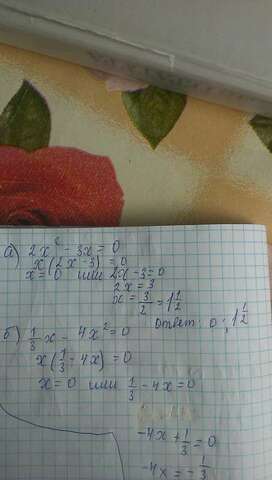 а) 2x² - 3x = 0
x(2x - 3) = 0
x = 0 или 2x - 3 = 0
2x = 3
x = 3/2 = 1 1/2
ответ: 0; 1 1/2
б) 1/3 x - 4x² = 0
x(1/3 - 4x) = 0
x = 0 или 1/3 - 4x = 0
-4x + 1/3 = 0
-4x = -1/3